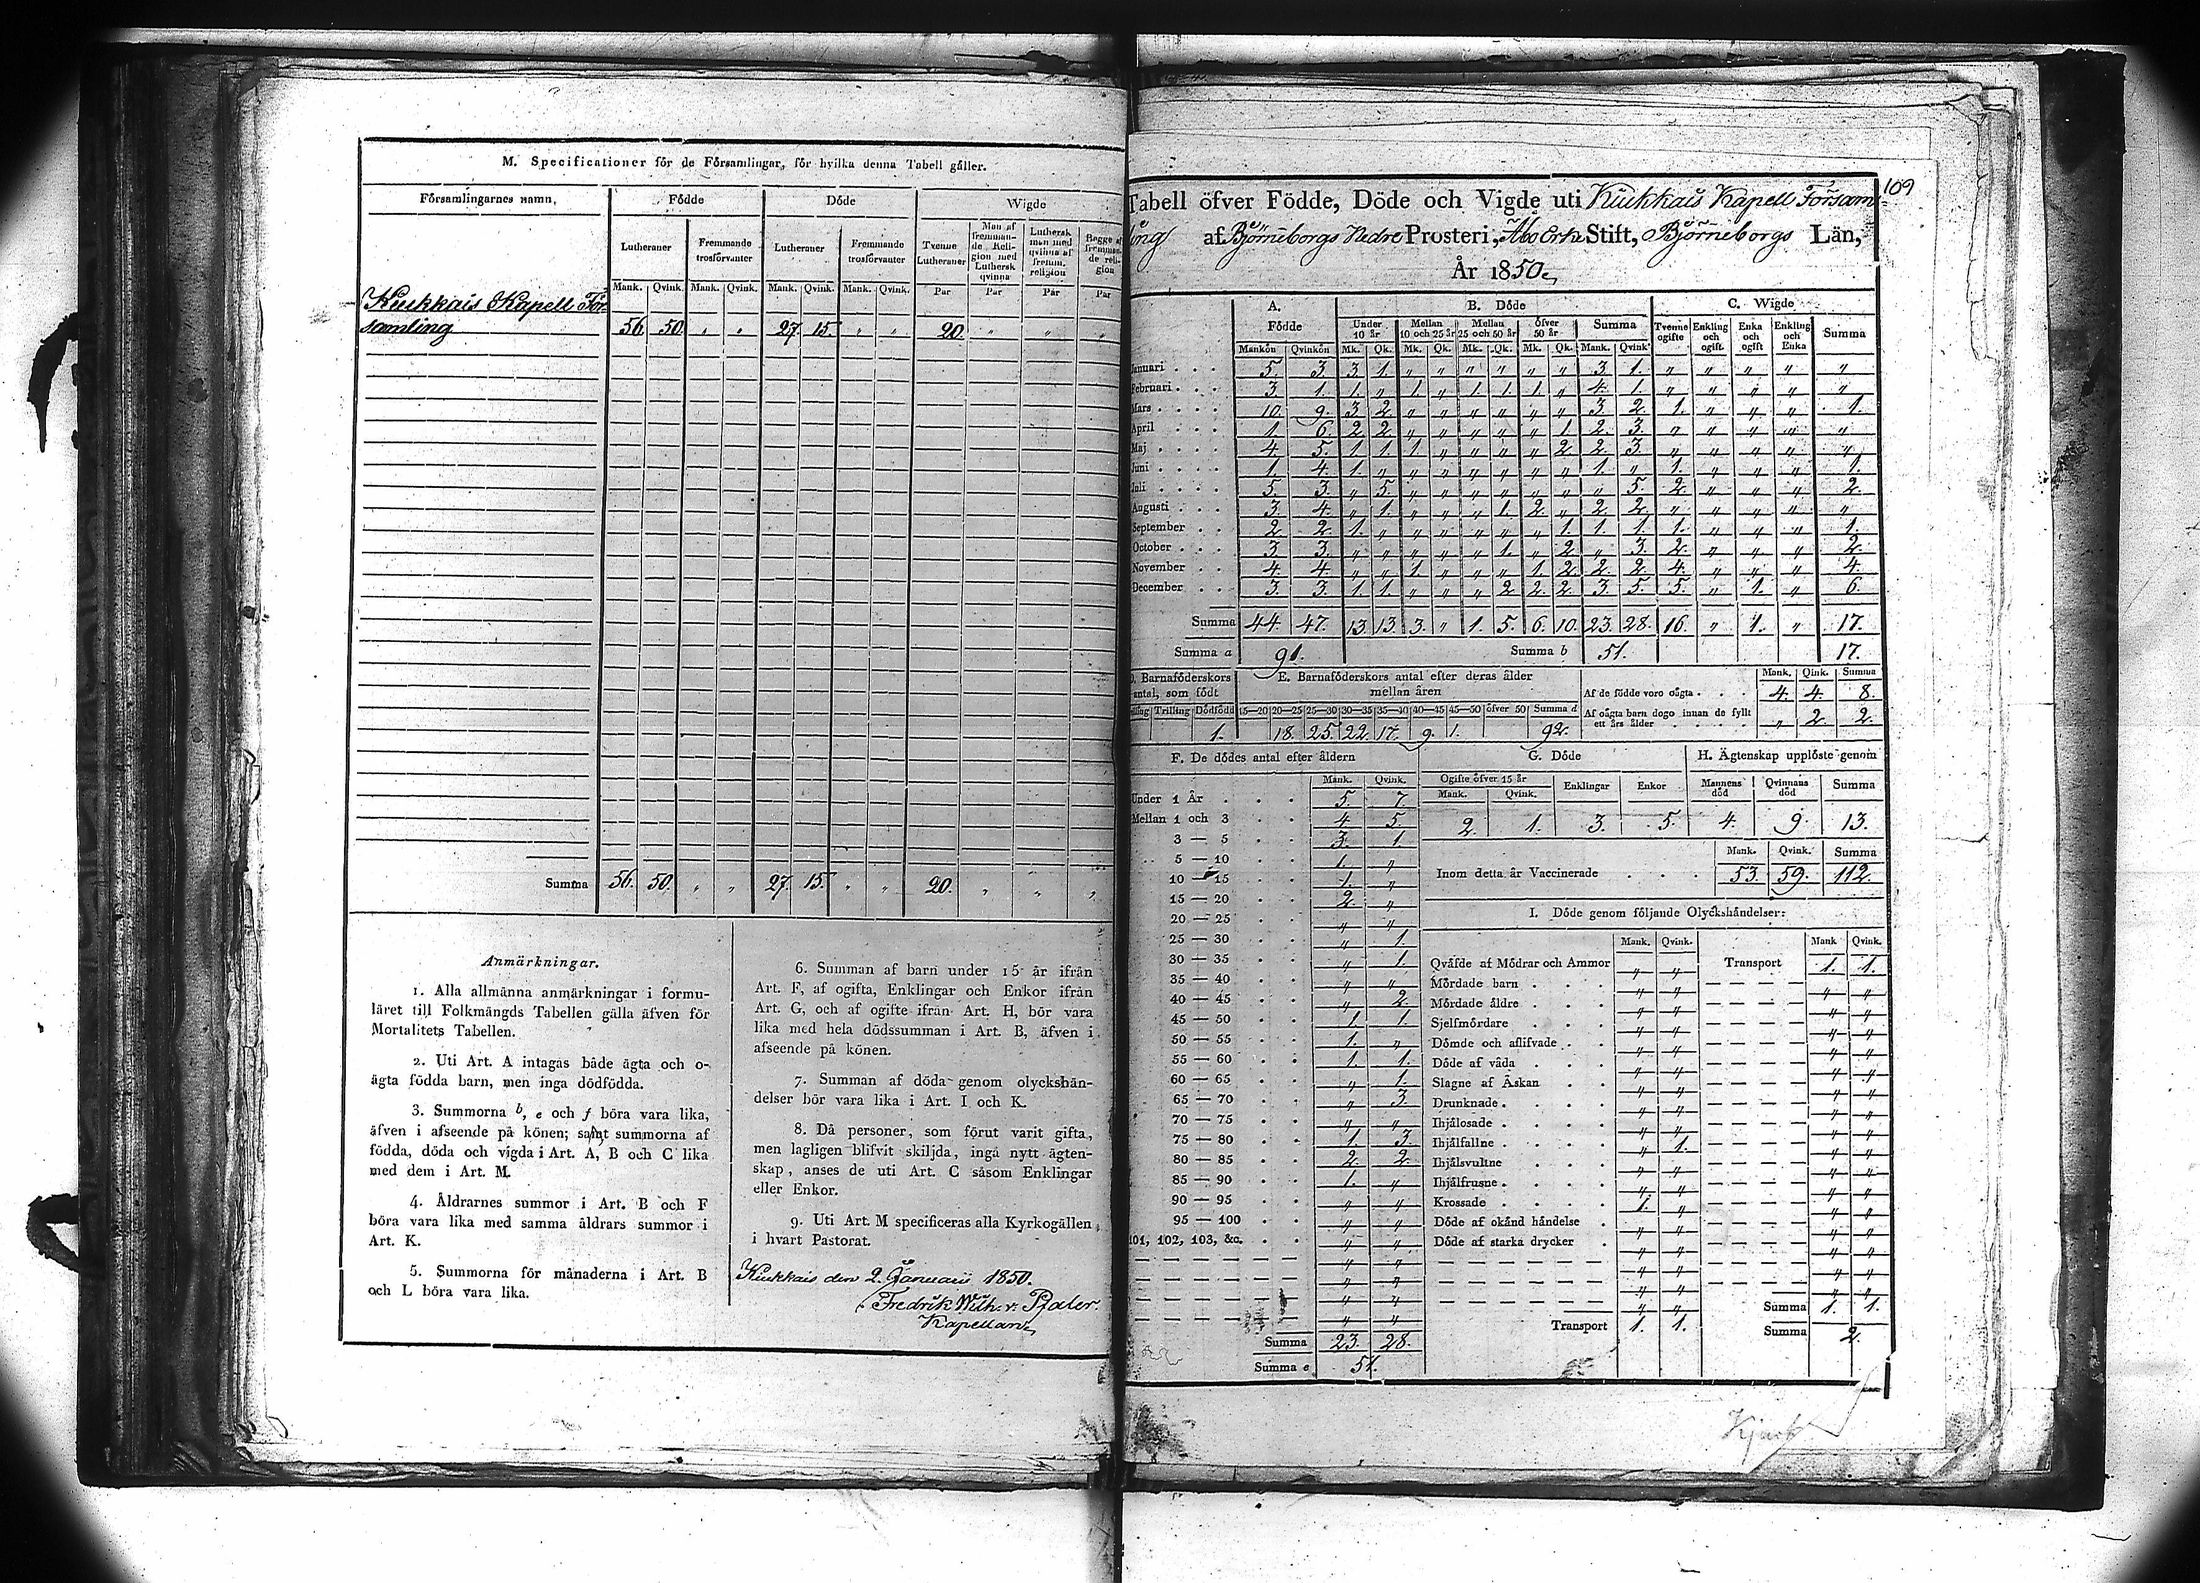 M. Specificationer för de Församlingar, för hvilka denna Tabell gäller.
Församlingarnes namn. Födde Döde Wigde
Lutheraner Fremmande trosförvanter Lutheraner Fremmande trosförvanter Tvenne Lutheraner Man af fremmande Religion med Luthersk qvinna Luthersk man med qvinna af fremm. religion Begge af fremmande religion
Mank. Qvink. Mank. Qvink. Mank. Qvink. Mank. Qvink. Par Par Par Par
Kiukkais Kapell För-
samling 56. 50. " " 27. 15. " " 20. " " "
Summa 56. 50. " " 27. 15. " " 20. " " "
Anmärkningar.
1. Alla allmänna anmärkningar i formu-
läret till Folkmängds Tabellen gälla äfven för
Mortalitets Tabellen.
2. Uti Art. A intagas både ägta och o-
ägta födda barn, men inga dödfödda.
3. Summorna b, e och f böra vara lika,
äfven i afseende på könen; samt summorna af
födda, döda och vigda i Art. A, B och C lika
med dem i Art. M.
4. Åldrarnes summor i Art. B och F
böra vara lika med samma åldrars summor i
Art. K.
5. Summorna för månaderna i Art. B
och L böra vara lika.
6. Summan af barn under 15 år ifrån
Art. F, af ogifta, Enklingar och Enkor ifrån
Art. G, och af ogifte ifrån Art. H, bör vara
lika med hela dödssumman i Art. B, äfven i
afseende på könen.
7. Summan af döda genom olyckshän-
delser bör vara lika i Art. I och K.
8. Då personer, som förut varit gifta,
men lagligen blifvit skiljda, ingå nytt ägten-
skap, anses de uti Art. C såsom Enklingar
eller Enkor.
9. Uti Art. M specificeras alla Kyrkogällen
i hvart Pastorat.
Kiukkais den 2 Januarii 1850.
Fredrik Wilh. v. Pfaler.
Kapellan
109
Tabell öfver Födde, Döde och Vigde uti Kiukkais Kapell Försam-
ling af Björneborgs Nedre Prosteri, Åbo Erke Stift, Björneborgs Län,
År 1850.
A. B. Döde C. Wigde
Födde Under 10 år Mellan 10 och 25 år Mellan 25 och 50 år öfver 50 år Summa Tvenne ogifte Enkling och ogift Enka och ogift Enkling och Enka Summa
Mankön Qvinkön Mk. Qk. Mk. Qk. Mk. Qk. Mk. Qk. Mank. Qvink
Januari 5. 3. 3. 1. " " " " " " 3. 1. " " " " "
Februari 3. 1. 1. " 1. " 1. 1. 1. " 4. 1. " " " " "
Mars 10. 9. 3. 2. " " " " " " 3. 2. 1. " " " 1.
April 1. 6. 2. 2. " " " " " 1. 2. 3. " " " " "
Maj 4. 5. 1. 1. 1. " " " " 2. 2. 3. " " " " "
Juni 1. 4. 1. " " " " " " " 1. " 1. " " " 1.
Juli 5. 3. " 5. " " " " " " " 5. 2. " " " 2.
Augusti 3. 4. " 1. " " " 1. 2. " 2. 2. " " " " "
September 2. 2. 1. " " " " " " 1. 1. 1. 1. " " " 1.
October 3. 3. " " " " " 1. " 2. " 3. 2. " " " 2.
November 4. 4. " " 1. " " " 1. 2. 2. 2. 4. " " " 4.
December 3. 3. 1. 1. " " " 2. 2. 2. 3. 5. 5. " 1. " 6.
Summa 44. 47. 13. 13. 3. " 1. 5. 6. 10. 23. 28. 16. " 1. " 17.
Summa a 91. Summa b 51. 17.
D. Barnaföderskors antal, som födt E. Barnaföderskors antal efter deras ålder mellan åren Mank. Qink. Summa
Af de födde voro oägta 4. 4. 8.
Trilling Dödfödd 15—20 20—25 25—30 30—35 35—40 40—45 45—50 öfver 50 Summa d
Af oägta barn dogo innan de fyllt ett års ålder " 2. 2.
1. 18. 25. 22. 17. 9. 1. 92.
F. De dödes antal efter åldern
Mank. Qvink.
Under 1 År 5. 7.
Mellan 1 och 3 4. 5.
3 — 5 3. 1.
5 — 10 1. "
10 — 15 1. "
15 — 20 2. "
20 — 25 " "
25 — 30 " 1.
30 — 35 " 1.
35 — 40 " "
40 — 45 " 2.
45 — 50 1. 1.
50 — 55 1. "
55 — 60 1. 1.
60 — 65 " 1.
65 — 70 " 3.
70 — 75 " "
75 — 80 1. 3.
80 — 85 2. 2.
85 — 90 1. "
90 — 95 " "
95 — 100 " "
101, 102, 103, &c. " "
Summa 23. 28.
Summa e 51.
G. Döde H. Ägtenskap upplöste genom
Ogifte öfver 15 år Enklingar Enkor Mannens död Qvinnans död Summa
Mank. Qvink.
2. 1. 3. 5. 4. 9. 13.
Mank. Qvink. Summa
Inom detta år Vaccinerade 53. 59. 112.
I. Döde genom följande Olyckshändelser:
Mank. Qvink. Mank Qvink.
Qväfde af Mödrar och Ammor " " Transport 1. 1.
Mördade barn " "
Mördade äldre " "
Sjelfmördare " "
Dömde och aflifvade " "
Döde af våda " "
Slagne af Åskan " "
Drunknade " "
Ihjälosade " "
Ihjälfallne " 1.
Ihjälsvultne " "
Ihjälfrusne " "
Krossade 1. "
Döde af okänd händelse " "
Döde af starka drycker " "
Transport 1. 1.
Summa 1. 1.
Summa 2.